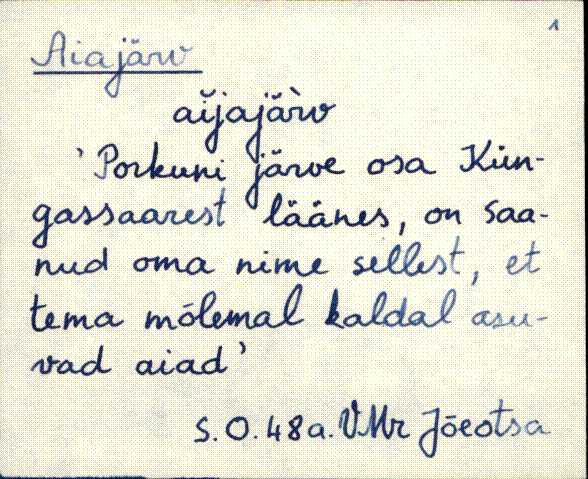 1
Aiajärv
aĭjajär̀v
'Porkuni järve osa Kün-
gassaarest läänes, on saa-
nud oma nime sellest, et
tema mõlemal kaldal asu-
vad aiad'
S.O.48a. VMr Jõeotsa